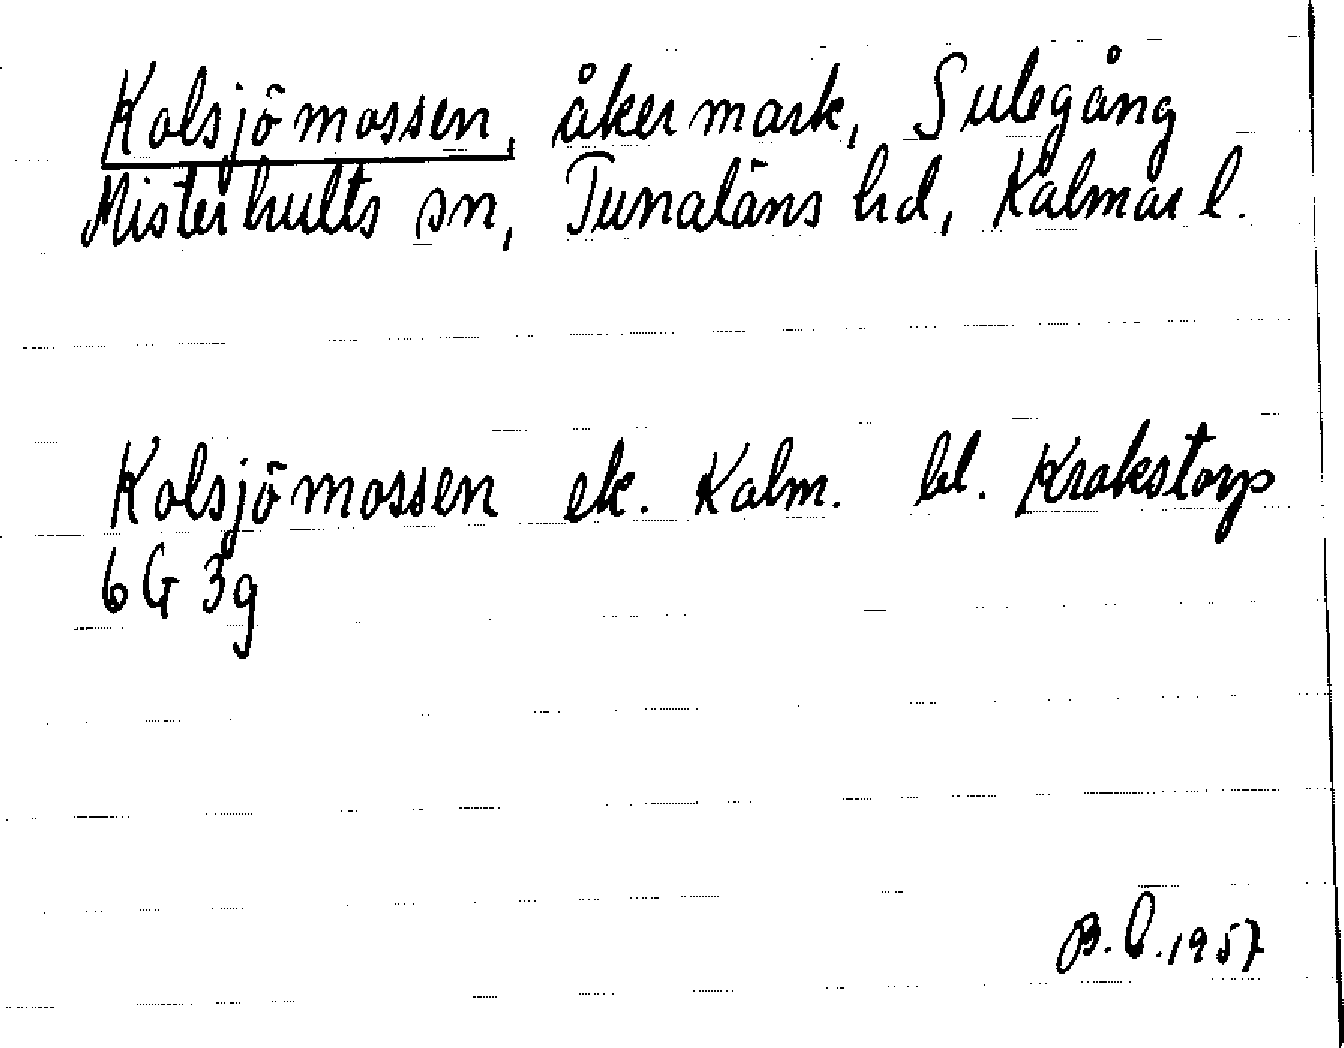 Kolsjömossen, åkermark, Sulegång
Misterhults sn, Tunaläns hd, Kalmar l.
Kolsjömossen ek. Kalm. bl. Krokstorp
6G 3g
B.Ö.1957